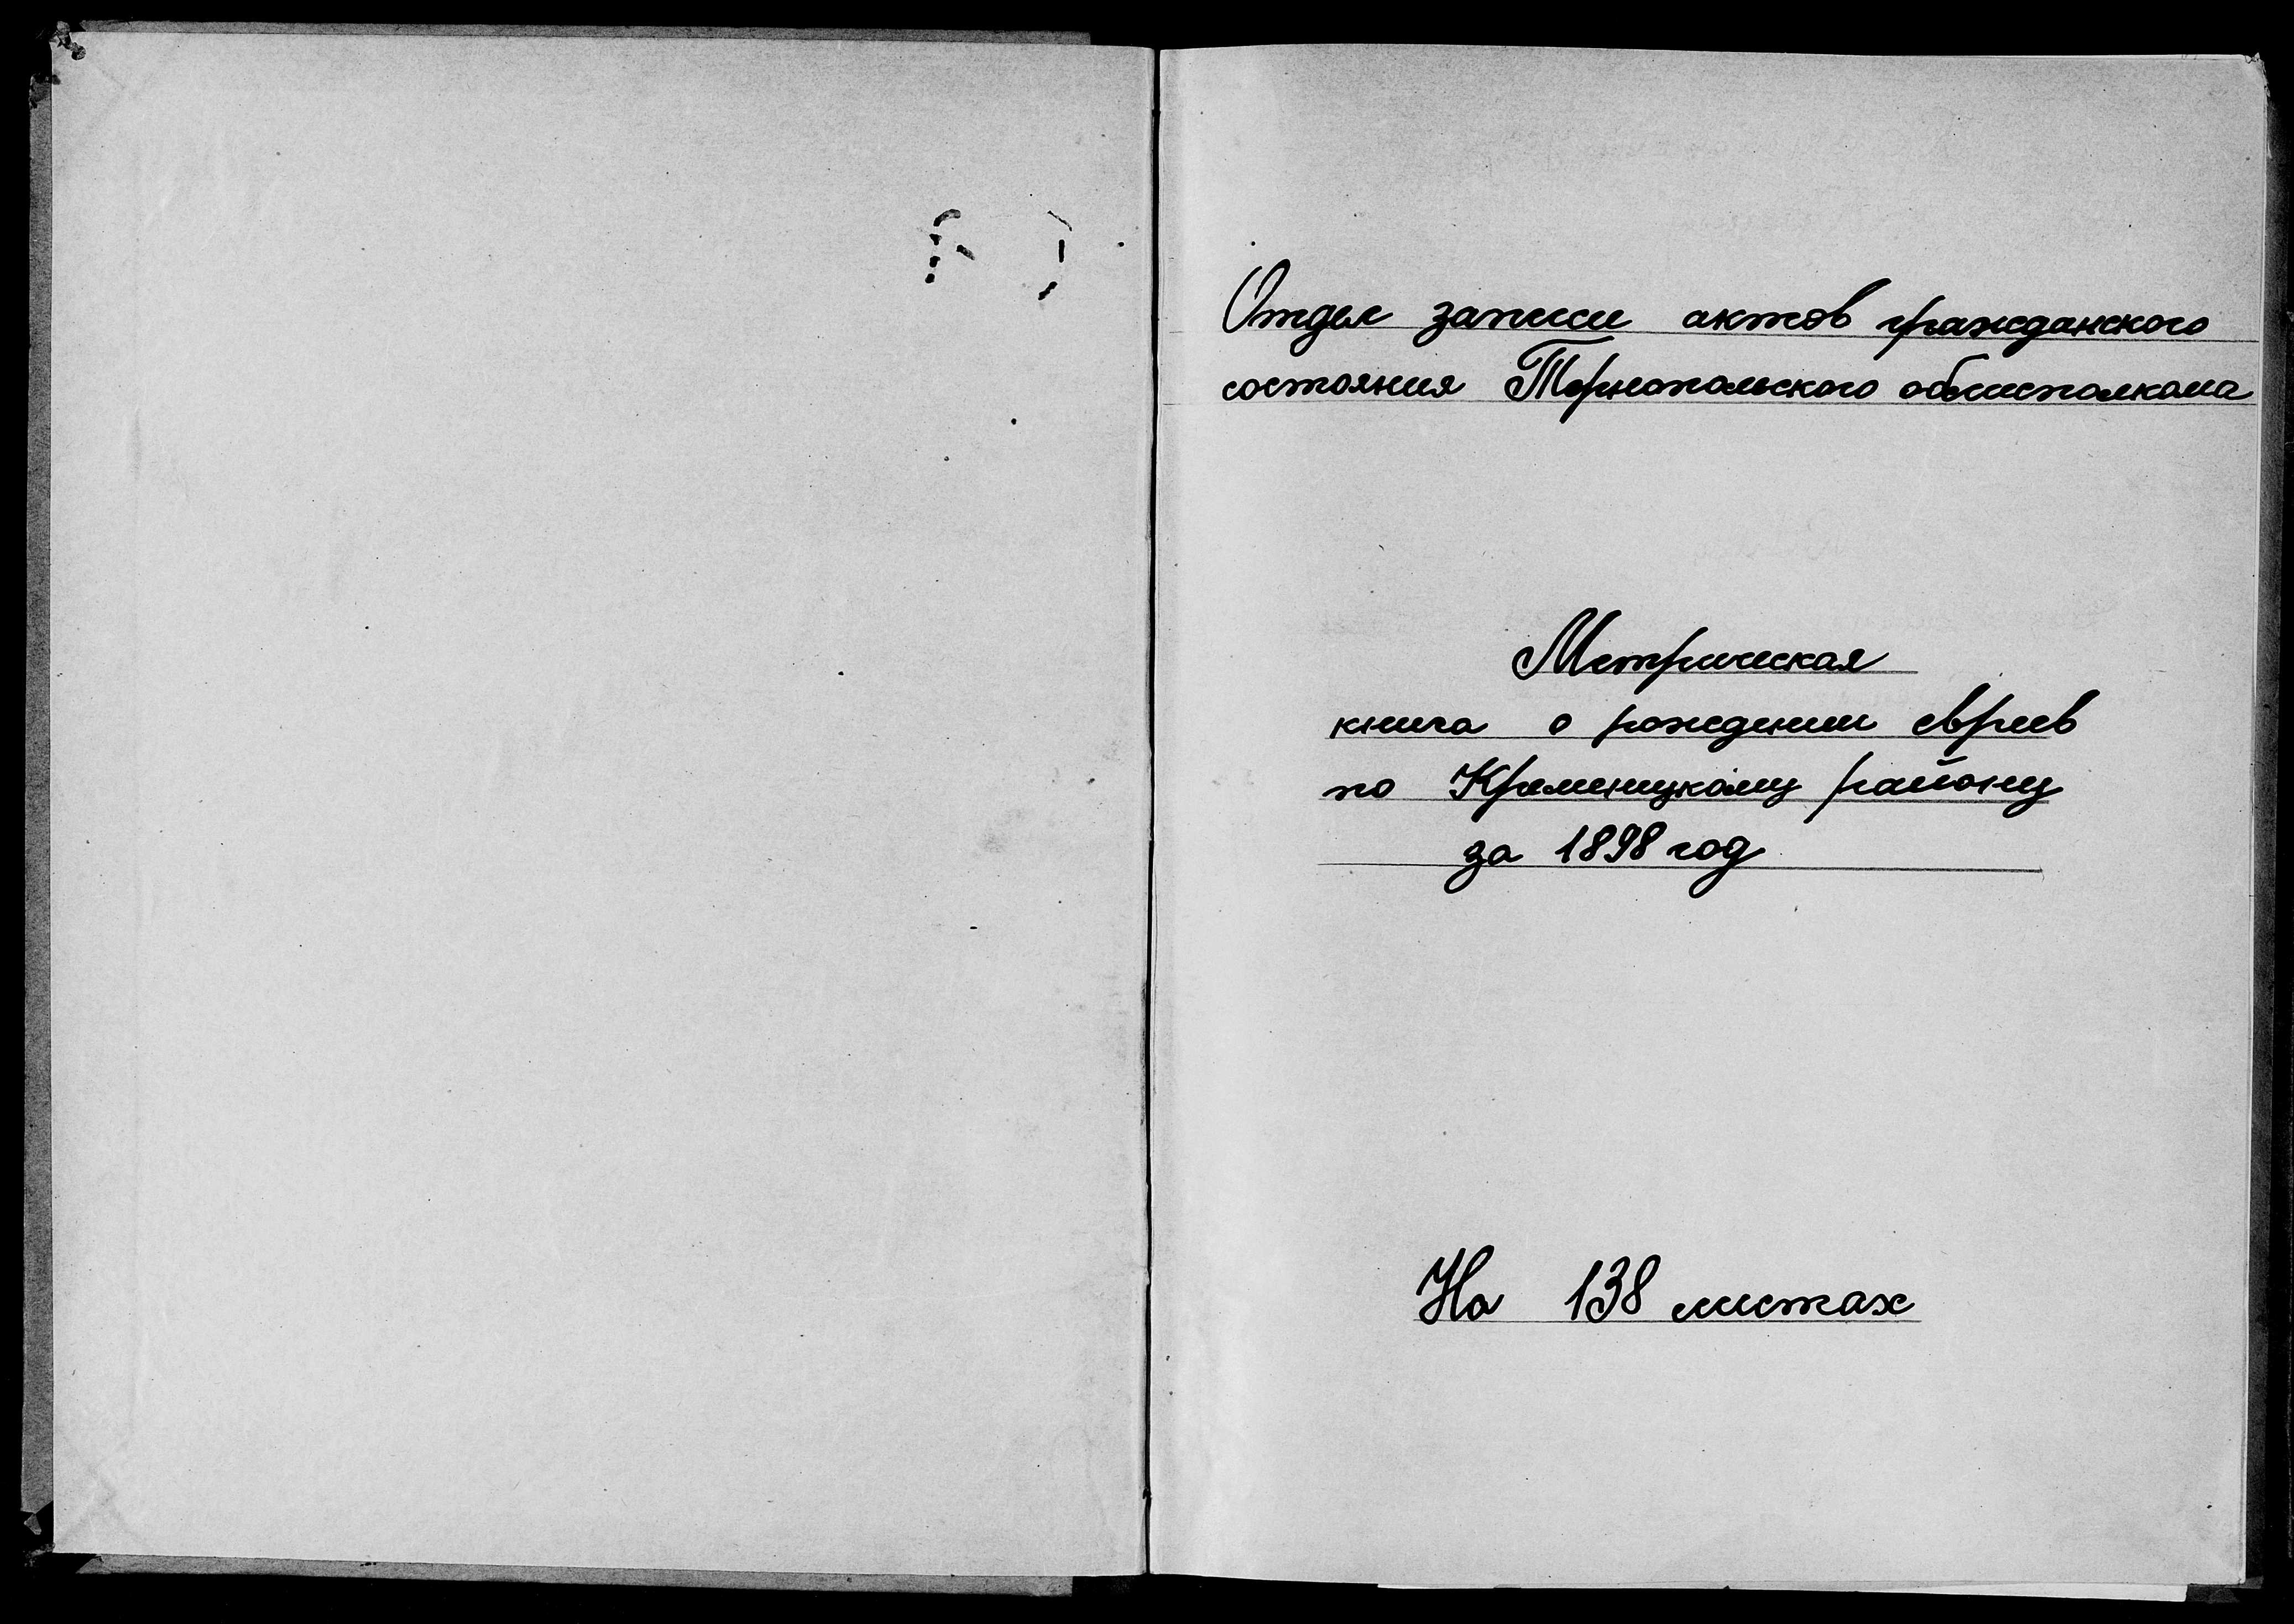 Отдел записи актов гражданского
состояния Тернопольского облисполкома
Метрическая
книга о рождении евреев
по Кременецкому району
за 1898 год
На 138 листах